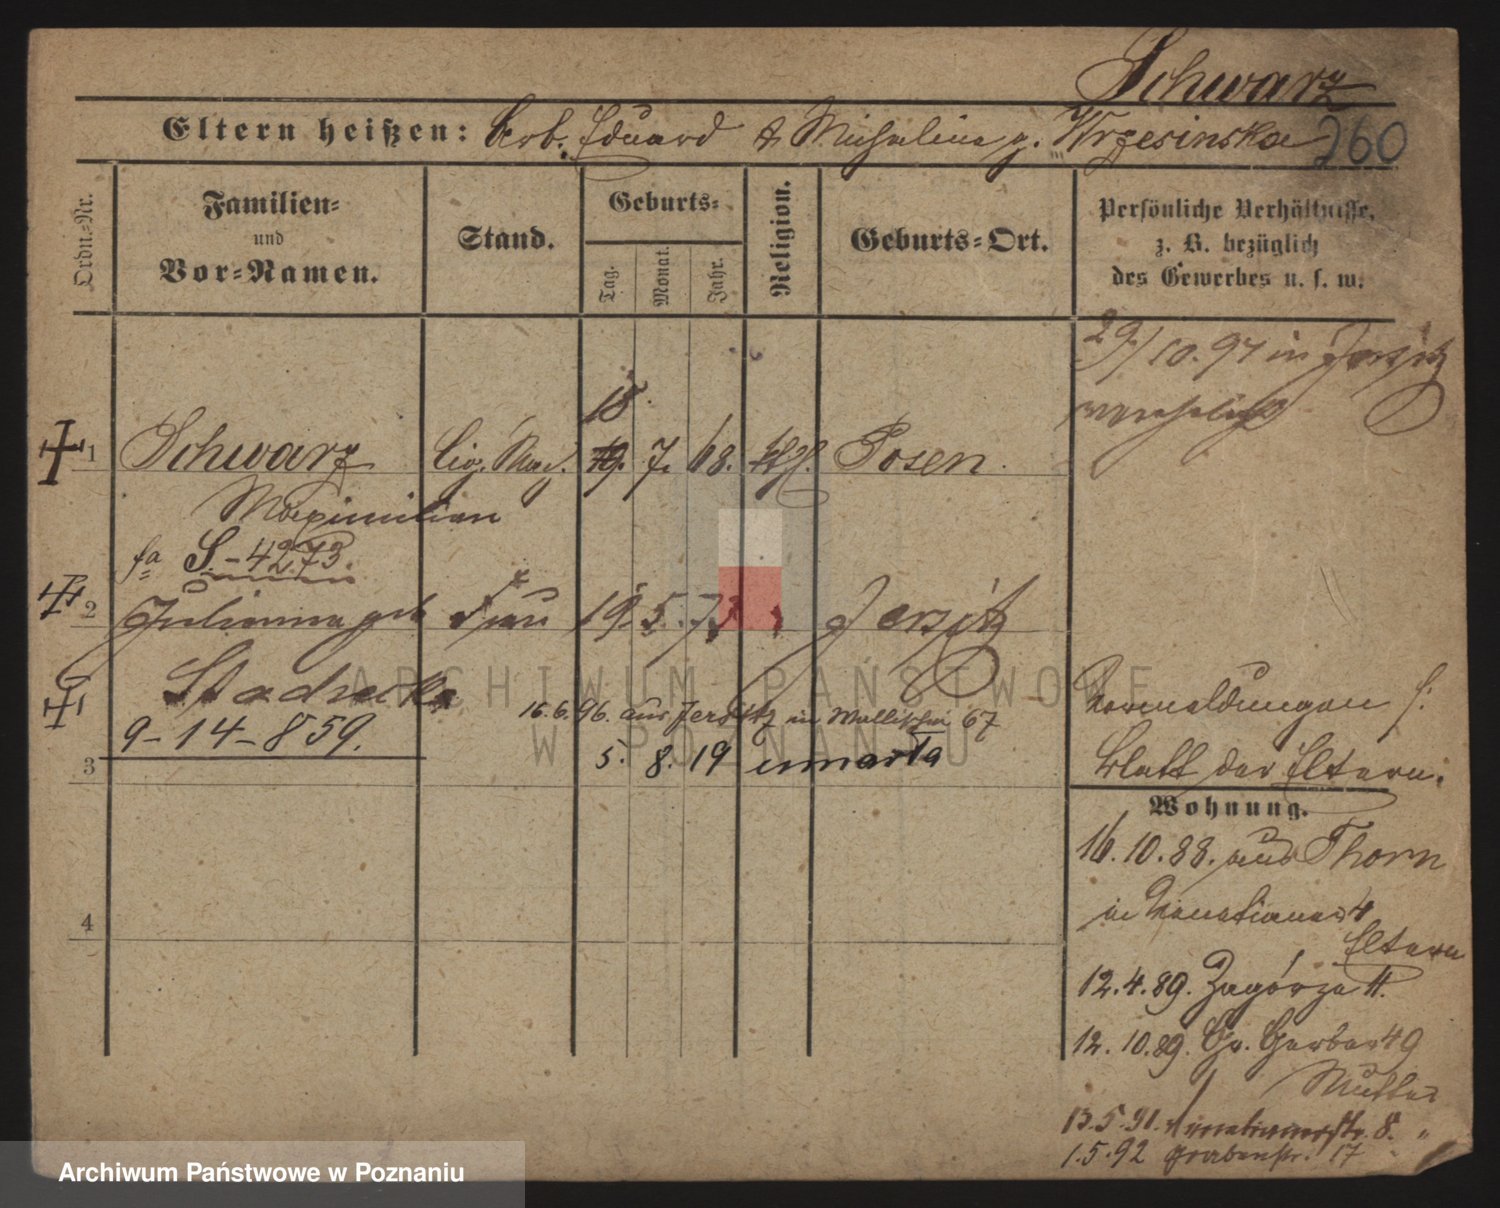 Schwarz
Eltern heißen: Arb. Eduard & Michalina g. Wrzesinska 260
Ordn.-Nr.
Familien- und Vor-Namen.
Stand.
Geburts-
Tag. Monat. Jahr.
Religion.
Geburts-Ort.
Persönliche Verhältnisse, z. B. bezüglich des Gewerbes u. s. w.
29/10.97 in Jersitz
verehelicht
18.
1 Schwarz Cig. Mach. 19. 7. 68. kth. Posen.
Maximilian
fa S.-4273.
2 Julianna geb Frau 19. 5. 73 " Jersitz
Stachecka
16.6.96. aus Jersitz in Wallischei 67
9-14-859.
5. 8. 19 umarła
3
4
Anmeldungen s:
Blatt der Eltern.
Wohnung.
16.10.88. aus Thorn
in Venetianer 4
Eltern
12.4.89. Zagórze 11.
12.10.89. Gr. Gerber 49
Mutter
13.5.91. Venetianerstr. 8. "
1.5.92 Grabenstr. 17 "
ARCHIWUM PAŃSTWOWE
W POZNANIU
Archiwum Państwowe w Poznaniu